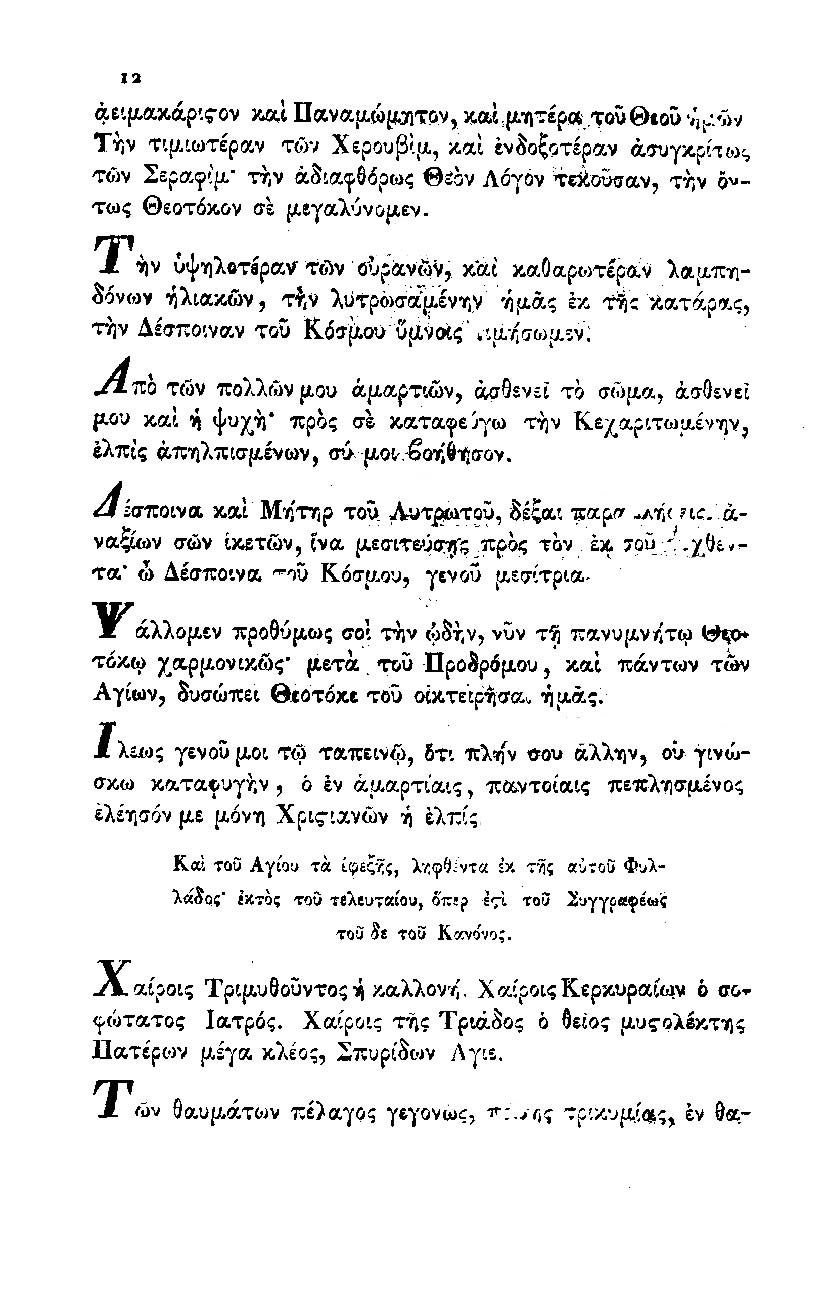 12
ἀειμακάριϛον καὶ Παναμώμητον, καὶ μητέρα τοῦ Θεοῦ ἡμῶν
Τὴν τιμιωτέραν τῶν Χερουβὶμ, καὶ ἐνδοξοτέραν ἀσυγκρίτως
τῶν Σεραφὶμ· τὴν ἀδιαφθόρως Θεὸν Λόγον τεκοῦσαν, τὴν ὄν-
τως Θεοτόκον σὲ μεγαλύνομεν.
Τὴν ὑψηλοτέραν τῶν οὐρανῶν, καὶ καθαρωτέραν λαμπη-
δόνων ἡλιακῶν, τὴν λυτρωσαμένην ἡμᾶς ἐκ τῆς κατάρας,
τὴν Δέσποιναν τοῦ Κόσμου ὕμνοις τιμήσωμεν.
Ἀπὸ τῶν πολλῶν μου ἁμαρτιῶν, ἀσθενεῖ τὸ σῶμα, ἀσθενεῖ
μου καὶ ἡ ψυχὴ· πρὸς σὲ καταφεύγω τὴν Κεχαριτωμένην,
ἐλπὶς ἀπηλπισμένων, σύ μοι βοήθησον.
Δέσποινα καὶ Μήτηρ τοῦ Λυτρωτοῦ, δέξαι ἀ-
ναξίων σῶν ἱκετῶν, ἵνα μεσιτεύσῃς πρὸς τὸν ἐκ σοῦ
τα· ὦ Δέσποινα τοῦ Κόσμου, γενοῦ μεσίτρια.
Ψάλλομεν προθύμως σοὶ τὴν ᾠδὴν, νῦν τῇ πανυμνήτῳ Θεο-
τόκῳ χαρμονικῶς· μετὰ τοῦ Προδρόμου, καὶ πάντων τῶν
Αγίων, δυσώπει Θεοτόκε τοῦ οἰκτειρῆσαι ἡμᾶς.
Ιλεως γενοῦ μοι τῷ ταπεινῷ, ὅτι πλήν σου ἄλλην, οὐ γινώ-
σκω καταφυγὴν, ὁ ἐν ἁμαρτίαις, παντοίαις πεπλησμένος
ἐλέησόν με μόνη Χριϛιανῶν ἡ ἐλπίς
Καὶ τοῦ Αγίου τὰ ἐφεξῆς, ληφθέντα ἐκ τῆς αὐτοῦ Φυλ-
λάδος· ἐκτὸς τοῦ τελευταίου, ὅπερ ἐϛὶ τοῦ Συγγραφέως
τοῦ δε τοῦ Κανόνος.
Χαίροις Τριμυθοῦντος ἡ καλλονή. Χαίροις Κερκυραίων ὁ σο-
φώτατος Ιατρός. Χαίροις τῆς Τριάδος ὁ θεῖος μυϛολέκτης
Πατέρων μέγα κλέος, Σπυρίδων Αγιε.
Τῶν θαυμάτων πέλαγος γεγονως, τρικυμίας, ἐν θα-